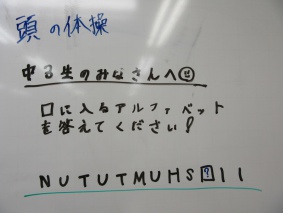 頭の体操
中3生のみなさんへ
□に入るアルファベット
を答えてください!
NUTUTMUHS?11